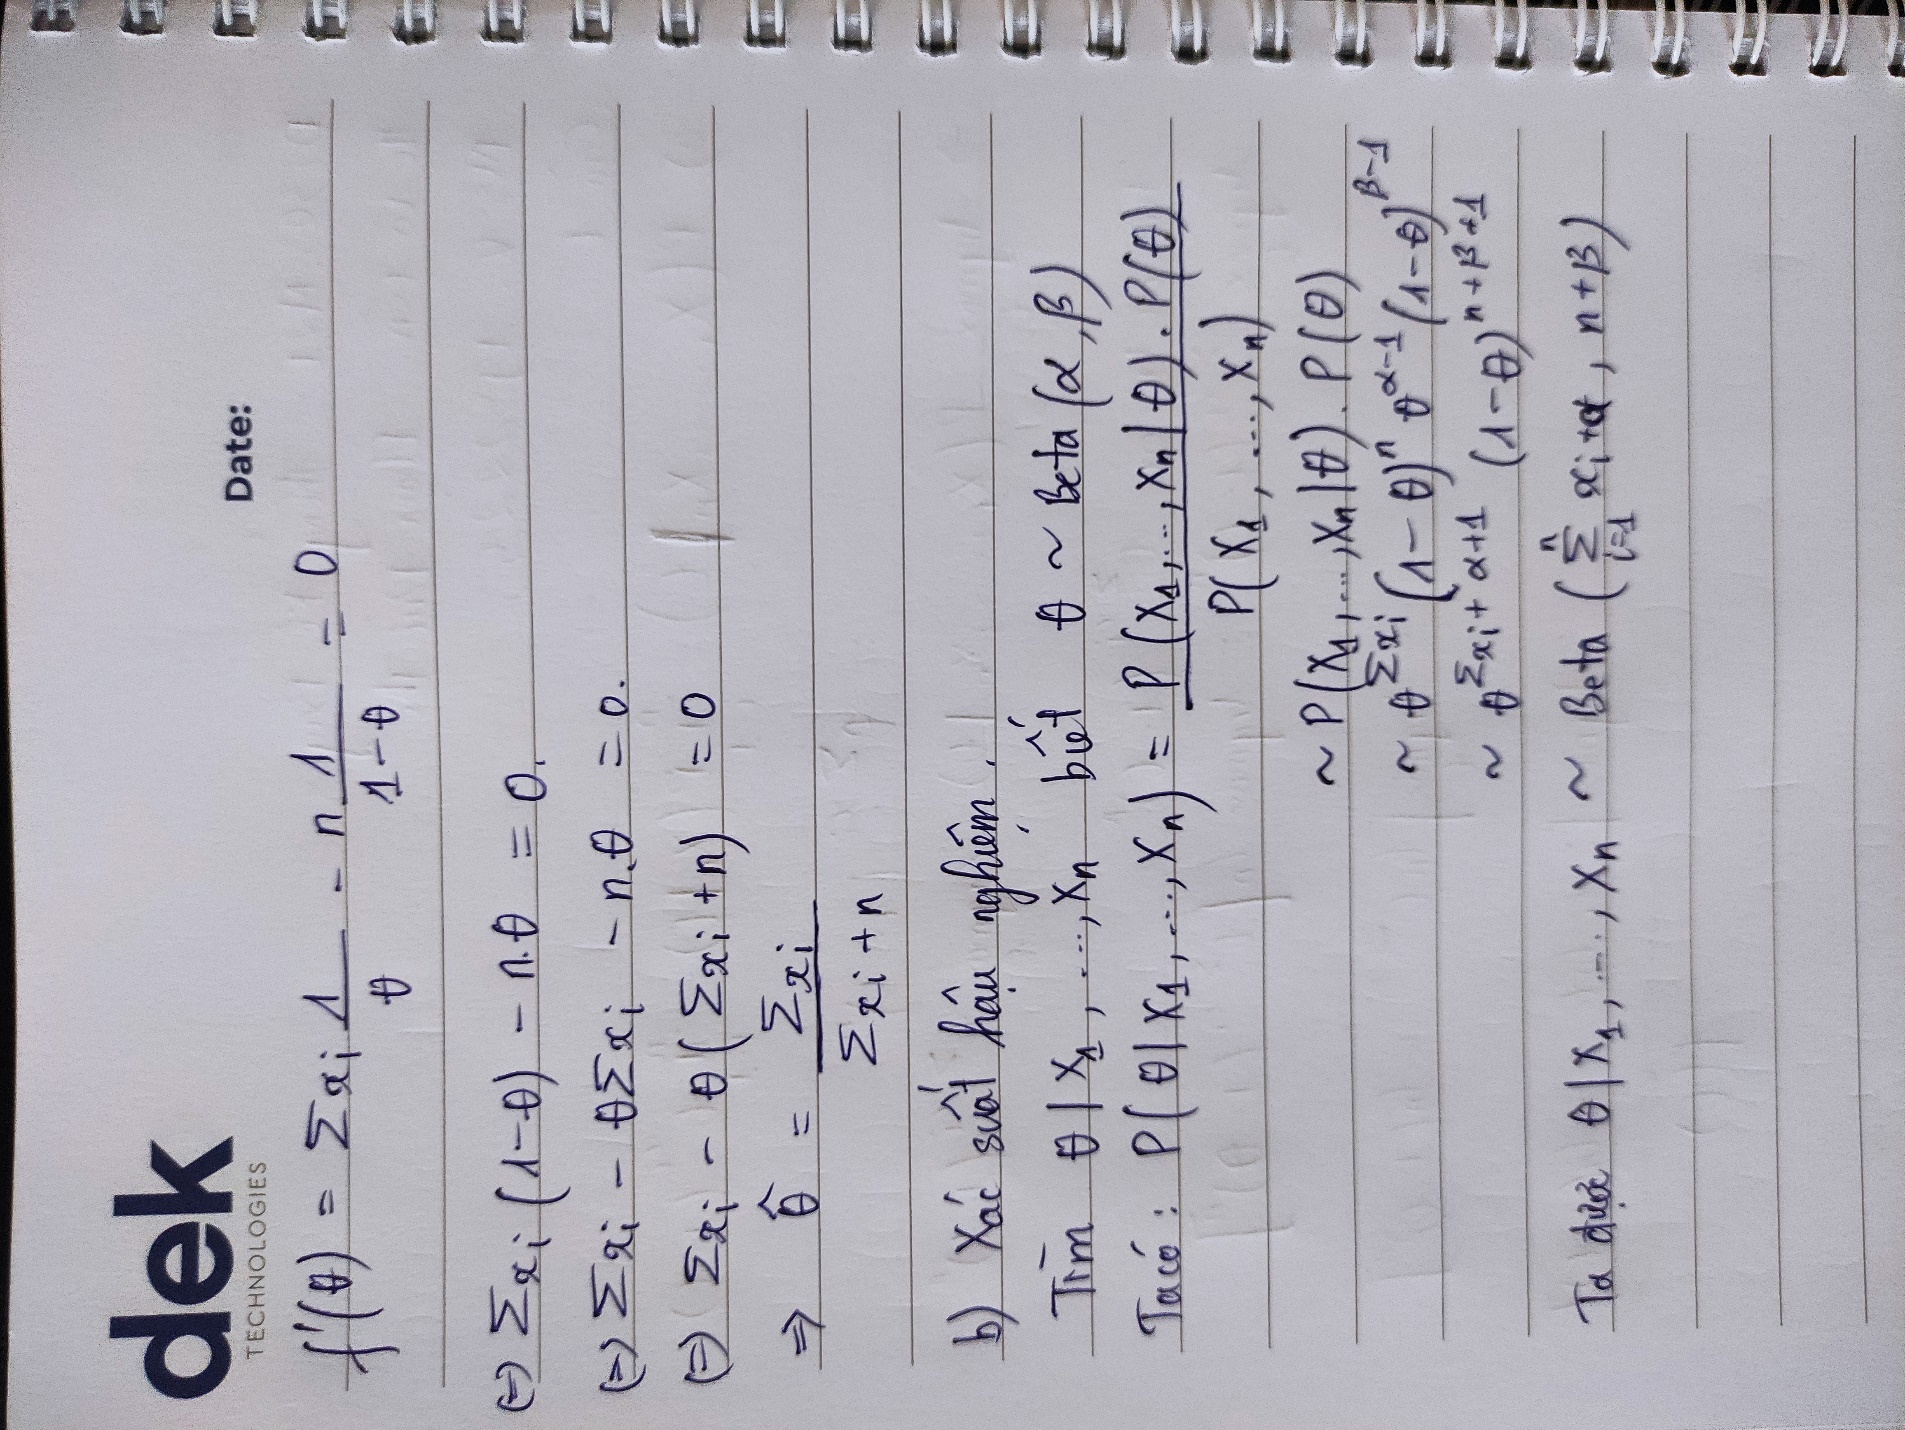 dek
TECHNOLOGIES
Date:
f'(θ) = Σxi 1/θ - n 1/(1-θ) = 0
(=) Σxi (1-θ) - n.θ = 0.
(=) Σxi - θΣxi - n.θ = 0.
(=) Σxi - θ(Σxi+n) = 0
⇒ θ̂ = Σxi / (Σxi+n)
b) Xác suất hậu nghiệm.
Tìm θ|X1,...,Xn biết θ ~ Beta (α,β)
Ta có: P(θ|X1,...,Xn) = P(X1,...,Xn|θ).P(θ) / P(X1,...,Xn)
~ P(X1,...,Xn|θ).P(θ)
~ θ^Σxi (1-θ)^n θ^α-1 (1-θ)^β-1
~ θ^Σxi+α+1 (1-θ)^n+β+1
Ta được θ|X1,...,Xn ~ Beta (Σ_{i=1}^n xi+α, n+β)